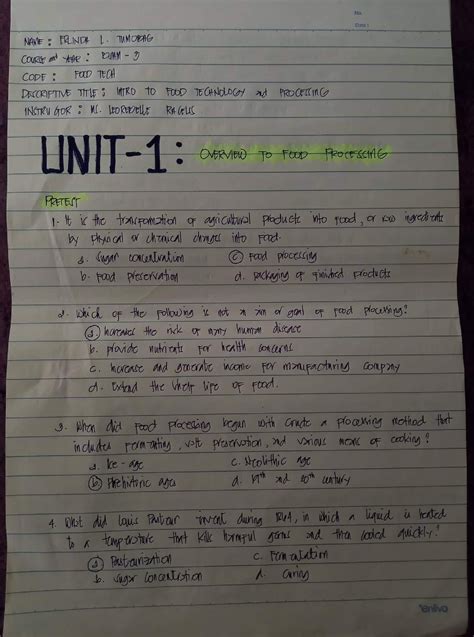 No.
Date:
NAME : ERLINDA L. TUMOBAG
COURSE and YEAR : BSHM - 3
CODE : FOOD TECH
DESCRIPTIVE TITLE : INTRO TO FOOD TECHNOLOGY and PROCESSING
INSTRUCTOR : MS.
UNIT-1: OVERVIEW TO FOOD PROCESSING
PRETEST
1. It is the transformation of agricultural products into food, or raw ingredients
by physical or chemical changes into food.
a. sugar concentration c. Food processing
b. Food preservation d. packaging of finished products
2. Which of the following is not an aim or goal of food processing?
a. Increases the risk of many human disease
b. provide nutrients for health concerns
c. Increase and generate income for manufacturing company
d. Extend the shelf life of food.
3. When did food processing began with crude a processing method that
includes fermenting, salt preservation, and various means of cooking?
a. Ice - age c. Neolithic age
b. Prehistoric ages d. 19th and 20th century
4. What did Louis Pasteur invent during 1864, in which a liquid is heated
to a temperature that kills harmful germs and then cooled quickly?
a. Pasteurization c. Fermentation
b. Sugar concentration d. Curing